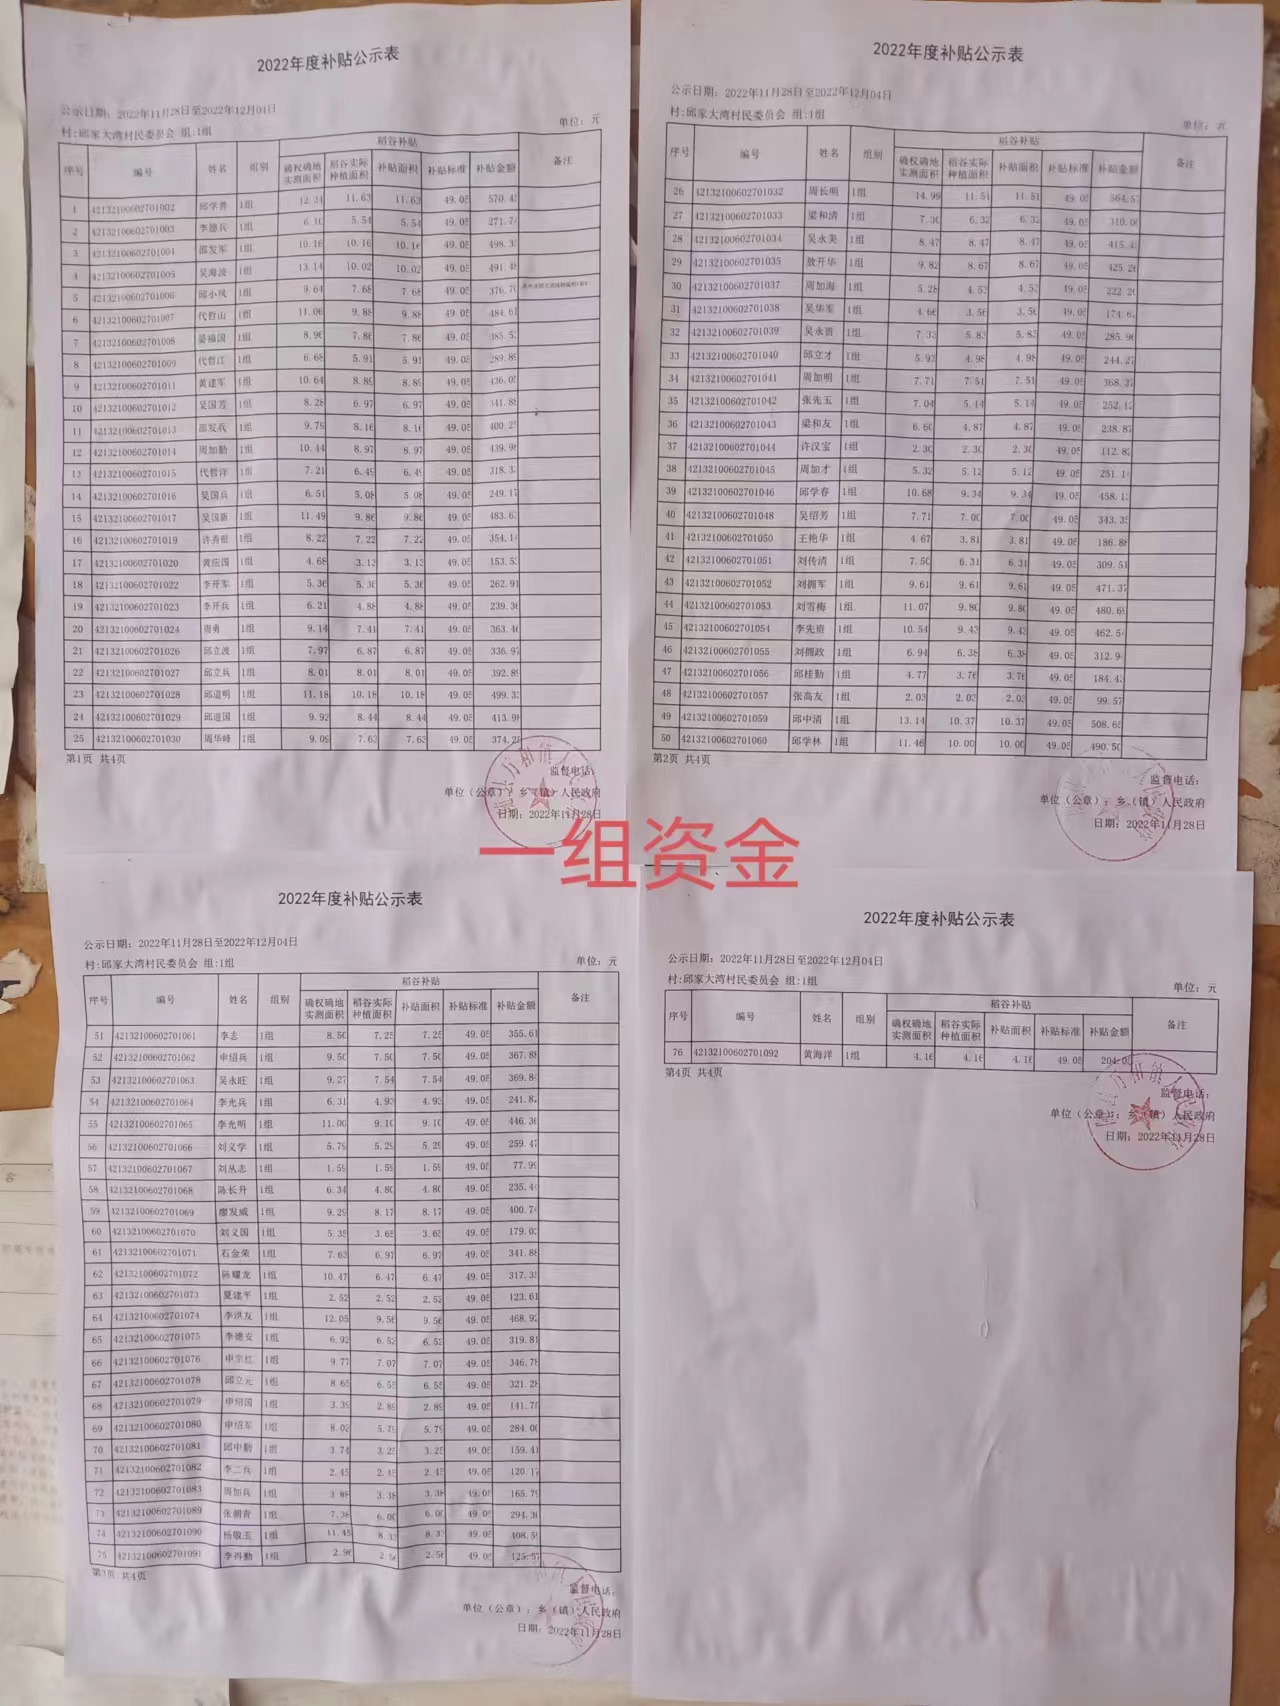 2022年度补贴公示表
公示日期：2022年11月28日至2022年12月04日
村：邱家大湾村民委员会 组：1组
单位：元
序号 编号 姓名 组别 稻谷补贴 备注
确权确地实测面积 稻谷实际种植面积 补贴面积 补贴标准 补贴金额
1 42132100602701002 邱学普 1组 12.31 11.63 11.63 49.05 570.4
2 42132100602701003 李德兵 1组 6.10 5.54 5.54 49.05 271.7
3 42132100602701004 邵发军 1组 10.16 10.16 10.16 49.05 498.3
4 42132100602701005 吴海波 1组 13.14 10.02 10.02 49.05 491.4
5 42132100602701006 邱小凤 1组 9.64 7.68 7.68 49.05 376.7
6 42132100602701007 代哲山 1组 11.06 9.88 9.88 49.05 484.61
7 42132100602701008 晏福国 1组 8.96 7.86 7.86 49.05 385.5
8 42132100602701009 代哲江 1组 6.68 5.91 5.91 49.05 289.89
9 42132100602701011 黄建军 1组 10.64 8.89 8.89 49.05 436.05
10 42132100602701012 吴国芳 1组 8.28 6.97 6.97 49.05 341.88
11 42132100602701013 邵发兵 1组 9.79 8.16 8.16 49.05 400.2
12 42132100602701014 周加勤 1组 10.44 8.97 8.97 49.05 439.98
13 42132100602701015 代哲洋 1组 7.21 6.49 6.49 49.05 318.3
14 42132100602701016 吴国兵 1组 6.51 5.08 5.08 49.05 249.17
15 42132100602701017 吴国新 1组 11.49 9.86 9.86 49.05 483.6
16 42132100602701019 许秀银 1组 8.22 7.22 7.22 49.05 354.1
17 42132100602701020 黄应国 1组 4.68 3.13 3.13 49.05 153.5
18 42132100602701022 李开军 1组 5.36 5.36 5.36 49.05 262.91
19 42132100602701023 李开兵 1组 6.21 4.88 4.88 49.05 239.36
20 42132100602701024 周勇 1组 9.14 7.41 7.41 49.05 363.46
21 42132100602701026 邱立波 1组 7.97 6.87 6.87 49.05 336.97
22 42132100602701027 邱立兵 1组 8.01 8.01 8.01 49.05 392.89
23 42132100602701028 邱道明 1组 11.18 10.18 10.18 49.05 499.33
24 42132100602701029 邱道国 1组 9.92 8.44 8.44 49.05 413.98
25 42132100602701030 周华峰 1组 9.09 7.63 7.63 49.05 374.2
第1页 共4页
监督电话：
单位（公章）：乡（镇）人民政府
日期：2022年11月28日
2022年度补贴公示表
公示日期：2022年11月28日至2022年12月04日
村：邱家大湾村民委员会 组：1组
单位：元
序号 编号 姓名 组别 稻谷补贴 备注
确权确地实测面积 稻谷实际种植面积 补贴面积 补贴标准 补贴金额
26 42132100602701032 周长明 1组 14.99 11.51 11.51 49.05 564.57
27 42132100602701033 梁和清 1组 7.30 6.32 6.32 49.05 310.00
28 42132100602701034 吴永美 1组 8.47 8.47 8.47 49.05 415.4
29 42132100602701035 敖开华 1组 9.82 8.67 8.67 49.05 425.26
30 42132100602701037 周加海 1组 5.28 4.53 4.53 49.05 222.20
31 42132100602701038 吴华军 1组 4.66 3.56 3.56 49.05 174.62
32 42132100602701039 吴永贵 1组 7.33 5.83 5.83 49.05 285.96
33 42132100602701040 邱立才 1组 5.93 4.98 4.98 49.05 244.27
34 42132100602701041 周加明 1组 7.71 7.51 7.51 49.05 368.37
35 42132100602701042 张先玉 1组 7.04 5.14 5.14 49.05 252.12
36 42132100602701043 梁和友 1组 6.60 4.87 4.87 49.05 238.87
37 42132100602701044 许汉宝 1组 2.30 2.30 2.30 49.05 112.82
38 42132100602701045 周加才 1组 5.32 5.12 5.12 49.05 251.14
39 42132100602701046 邱学春 1组 10.68 9.34 9.34 49.05 458.13
40 42132100602701048 吴绍芳 1组 7.71 7.00 7.00 49.05 343.35
41 42132100602701050 王艳华 1组 4.67 3.81 3.81 49.05 186.88
42 42132100602701051 刘传清 1组 7.50 6.31 6.31 49.05 309.51
43 42132100602701052 刘拥军 1组 9.61 9.61 9.61 49.05 471.37
44 42132100602701053 刘雪梅 1组 11.07 9.80 9.80 49.05 480.69
45 42132100602701054 李先贵 1组 10.54 9.43 9.43 49.05 462.54
46 42132100602701055 刘拥政 1组 6.94 6.38 6.38 49.05 312.9
47 42132100602701056 邱桂勤 1组 4.77 3.76 3.76 49.05 184.43
48 42132100602701057 张高友 1组 2.03 2.03 2.03 49.05 99.57
49 42132100602701059 邱中清 1组 13.14 10.37 10.37 49.05 508.65
50 42132100602701060 邱学林 1组 11.46 10.00 10.00 49.05 490.50
第2页 共4页
监督电话：
单位（公章）：乡（镇）人民政府
日期：2022年11月28日
一组资金
2022年度补贴公示表
公示日期：2022年11月28日至2022年12月04日
村：邱家大湾村民委员会 组：1组
单位：元
序号 编号 姓名 组别 稻谷补贴 备注
确权确地实测面积 稻谷实际种植面积 补贴面积 补贴标准 补贴金额
51 42132100602701061 李志 1组 8.50 7.25 7.25 49.05 355.61
52 42132100602701062 申绍兵 1组 9.50 7.50 7.50 49.05 367.88
53 42132100602701063 吴永旺 1组 9.27 7.54 7.54 49.05 369.84
54 42132100602701064 李光兵 1组 6.31 4.93 4.93 49.05 241.82
55 42132100602701065 李光明 1组 11.00 9.10 9.10 49.05 446.36
56 42132100602701066 刘义学 1组 5.79 5.29 5.29 49.05 259.47
57 42132100602701067 刘丛志 1组 1.59 1.59 1.59 49.05 77.99
58 42132100602701068 陈长升 1组 6.34 4.80 4.80 49.05 235.44
59 42132100602701069 廖发威 1组 9.29 8.17 8.17 49.05 400.74
60 42132100602701070 刘义国 1组 5.35 3.65 3.65 49.05 179.03
61 42132100602701071 石金荣 1组 7.63 6.97 6.97 49.05 341.88
62 42132100602701072 陈耀龙 1组 10.47 6.47 6.47 49.05 317.35
63 42132100602701073 夏建平 1组 2.52 2.52 2.52 49.05 123.61
64 42132100602701074 李洪友 1组 12.05 9.56 9.56 49.05 468.92
65 42132100602701075 李德安 1组 6.92 6.52 6.52 49.05 319.81
66 42132100602701076 申宗红 1组 9.77 7.07 7.07 49.05 346.78
67 42132100602701078 邱立元 1组 8.65 6.55 6.55 49.05 321.28
68 42132100602701079 申绍国 1组 3.39 2.89 2.89 49.05 141.75
69 42132100602701080 申绍军 1组 8.02 5.79 5.79 49.05 284.00
70 42132100602701081 邱中勤 1组 3.74 3.25 3.25 49.05 159.41
71 42132100602701082 李二兵 1组 2.45 2.45 2.45 49.05 120.17
72 42132100602701083 周加兵 1组 3.88 3.38 3.38 49.05 165.79
73 42132100602701089 张朝青 1组 7.38 6.00 6.00 49.05 294.30
74 42132100602701090 杨敬玉 1组 11.45 8.33 8.33 49.05 408.59
75 42132100602701091 李得勤 1组 2.96 2.56 2.56 49.05 125.57
第3页 共4页
监督电话：
单位（公章）：乡（镇）人民政府
日期：2022年11月28日
2022年度补贴公示表
公示日期：2022年11月28日至2022年12月04日
村：邱家大湾村民委员会 组：1组
单位：元
序号 编号 姓名 组别 稻谷补贴 备注
确权确地实测面积 稻谷实际种植面积 补贴面积 补贴标准 补贴金额
76 42132100602701092 黄海洋 1组 4.16 4.16 4.16 49.05 204.05
第4页 共4页
监督电话：
单位（公章）：乡（镇）人民政府
日期：2022年11月28日